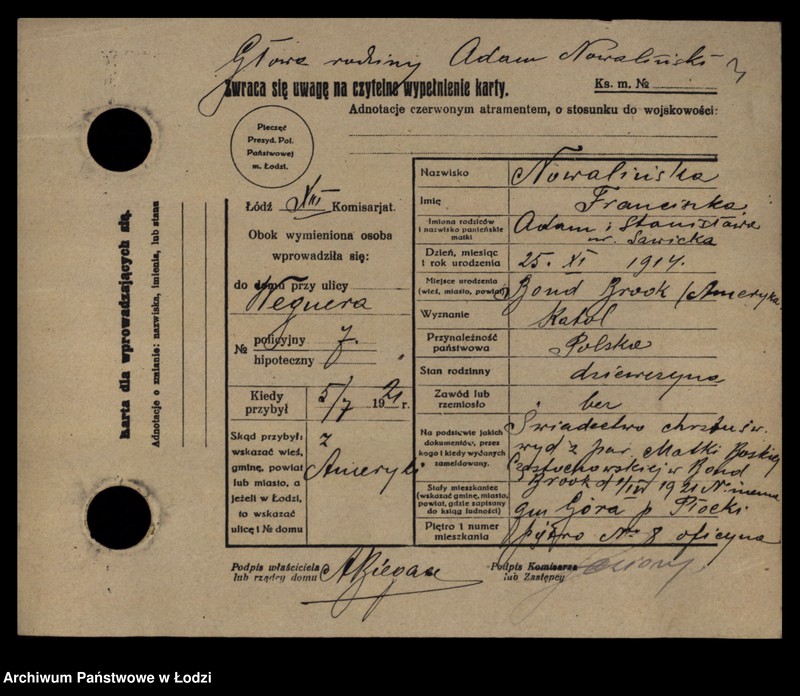 Głowa rodziny Adam Nowaliński
Zwraca się uwagę na czytelne wypełnienie karty.
Ks. m. №
Adnotacje czerwonym atramentem, o stosunku do wojskowości:
Pieczęć
Prezyd. Pol.
Państwowej
m. Łodzi.
Karta dla wprowadzających się.
Adnotacje o zmianie: nazwiska, imienia, lub stanu
Łódź XIII Komisarjat.
Obok wymieniona osoba
wprowadziła się:
do domu przy ulicy
Wegnera
№ policyjny 7.
hipoteczny
Kiedy przybył 5/7 1921 r.
Skąd przybył:
wskazać wieś,
gminę, powiat
lub miasto, a
jeżeli w Łodzi,
to wskazać
ulicę i № domu
z
Ameryki
Nazwisko Nowalińska
Imię Franciszka
Imiona rodziców
i nazwisko panieńskie
matki
Adam i Stanisława
ur. Sawicka
Dzień, miesiąc
i rok urodzenia
25. XI 1914.
Miejsce urodzenia
(wieś, miasto, powiat)
Bond Brook (Ameryka
Wyznanie Katol
Przynależność
państwowa
Polska
Stan rodzinny dziewczyna
Zawód lub
rzemiosło
bez
Na podstawie jakich
dokumentów, przez
kogo i kiedy wydanych
zameldowany.
Świadectwo chrztu św.
wyd z par. Matki Boskiej
Częstochowskiej w Bond
Brook d 1/IV 1921 № niema
Stały mieszkaniec
(wskazać gminę, miasto,
powiat, gdzie zapisany
do ksiąg ludności)
gm Góra p Płocki
Piętro i numer
mieszkania
piętro № 8 oficyna
Podpis właściciela
lub rządcy domu
Podpis Komisarza
lub Zastępcy
Archiwum Państwowe w Łodzi